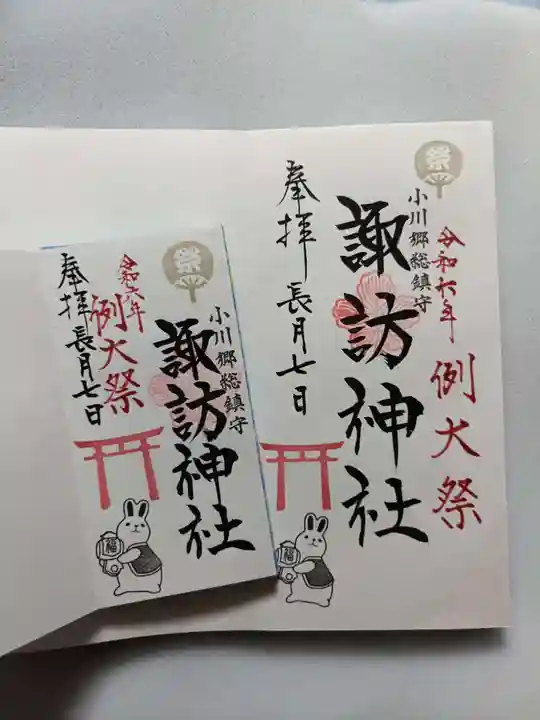 祭
小川郷総鎮守
令和六年
例大祭
諏訪神社
奉拝
長月七日
福
祭
小川郷総鎮守
諏訪神社
令和六年
例大祭
奉拝
長月七日
福